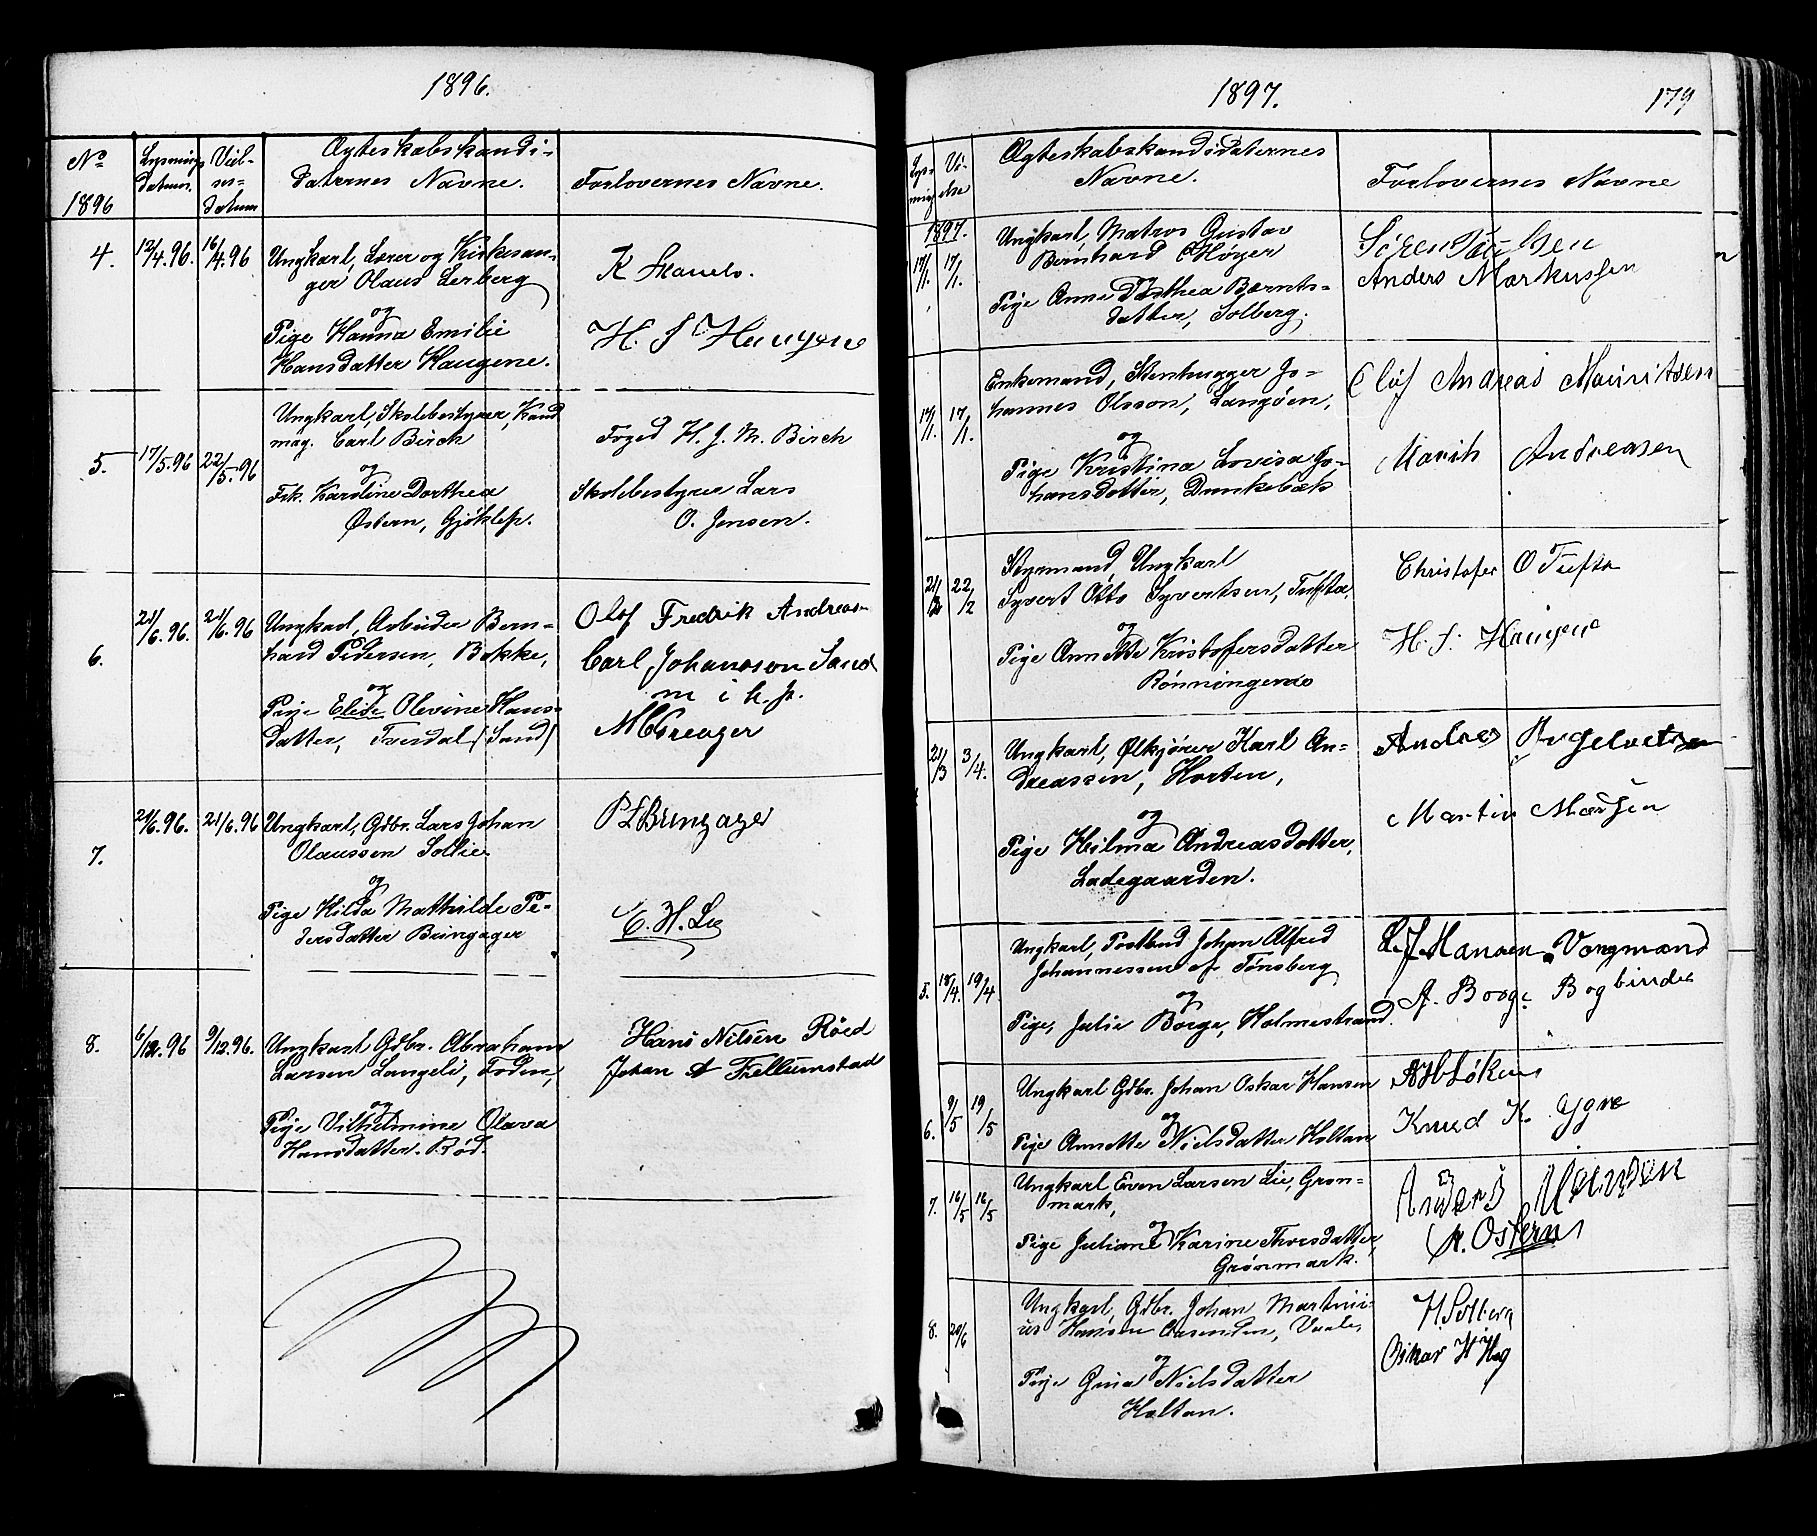 1896.
No
1896
Lysnings
datum.
Viel-
ses-
datum
Ægteskabskandi-
daternes Navne.
Forlovernes Navne.
4.
12/4.96.
16/4.96
Ungkarl, Lærer og Kirkesan-
ger Olaus Lerberg
og
Pige Hanna Emilie
Hansdatter Haugene.
K
H. J Haugene
5.
17/5.96
22/5.96
Ungkarl, Skolebestyrer, Kand
mag. Carl Birch
og
Frk. Karoline Dorthea
Østern, Gjøklep.
Foged H. J. M. Birch
Skolebestyrer Lars
O. Jensen.
6.
21/6.96.
21/6.96
Ungkarl, Arbeider Bern-
hard Pedersen, Bakke,
og
Pige Elise Olevine Hans-
datter, Tverdal (Sand)
Olof Fredrik Andreas-
Carl Johansson Sand
m. i. h. p.
7.
21/6.96.
21/6.96
Ungkarl, Gdbr. Lars Johan
Olaussen Sollie
og
Pige Hilda Mathilde Pe-
dersdatter Bringager
P L Bringager
E. H. Lie
8.
6/12.96
9/12.96.
Ungkarl Gdbr. Abraham
Larsen Langeli, Foden,
og
Pige Vilhelmine Olava
Hansdatter. Rød.
Hans Nilsen Röed
Johan A Frellumstad
1897.
179
Lys-
ning
Vi-
else
Ægteskabskandidaternes
Navne.
Forlovernes Navne
1897.
17/1.
17/1.
Ungkarl, Matros Gustav
Bernhard Høyer
Pige Anne Dorthea Bernts-
datter, Solberg.
Sören
Anders Markussen
17/1.
17/1.
Enkemand, Stenhugger Jo-
hannes Olsson, Langøen,
og
Pige Kristina Lovisa Jo-
hansdotter, Dunkebæk
Olof Andreas Mauritsen
Marith Andreasen
21/2
22/2
Styrmand, Ungkarl
Syvert Otto Syvertsen, Tufte.
og
Pige Annette Kristofersdatter
Rønningene
Christofer O Tufte
H. J. Haugene
21/3
3/4.
Ungkarl, Ølkjører Karl An-
dreassen, Horten,
og
Pige Hilma Andreasdotter,
Ladegaarden.
Andreas
Martin
5.
18/4.
19/4.
Ungkarl, Postbud Johan Alfred
Johannessen af Tønsberg
og
Pige, Julie Borge, Holmestrand.
L. J Hansen. Vognmand
A. Borge Bogbinder
6.
9/5
19/5
Ungkarl Gdbr. Johan Oskar Hansen
og
Pige Annette Nielsdatter Holtan
Knud K. Ygre
7.
16/5
16/5
Ungkarl Even Larsen Lie, Grøn-
mark,
og
Pige Juliane Karine Thorsdatter,
Grønmark.
Anders
A. Ostern
8.
20/6
Ungkarl, Gdbr. Johan Martini-
us Hansen Aasenden, Vaale,
og
Pige Gina Nielsdatter
Holtan.
H Solberg
Oskar H Hag